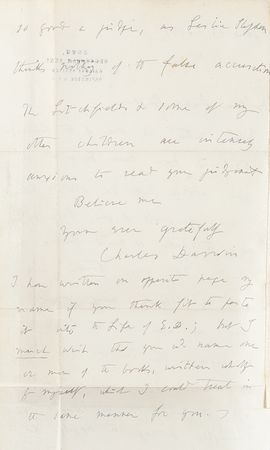 so good a judge, as Leslie Stephen
thinks nothing of the false accusation
The Litchfields & some of my
other children are intensely
anxious to read your judgment
Believe me
Yours ever gratefully
Charles Darwin
I have written on opposite page my
name if you think fit to paste
it into the Life of E.D.; but I
much wish that you wd name one
or more of the books, written wholly
by myself, which I could treat in
the same manner for you. —